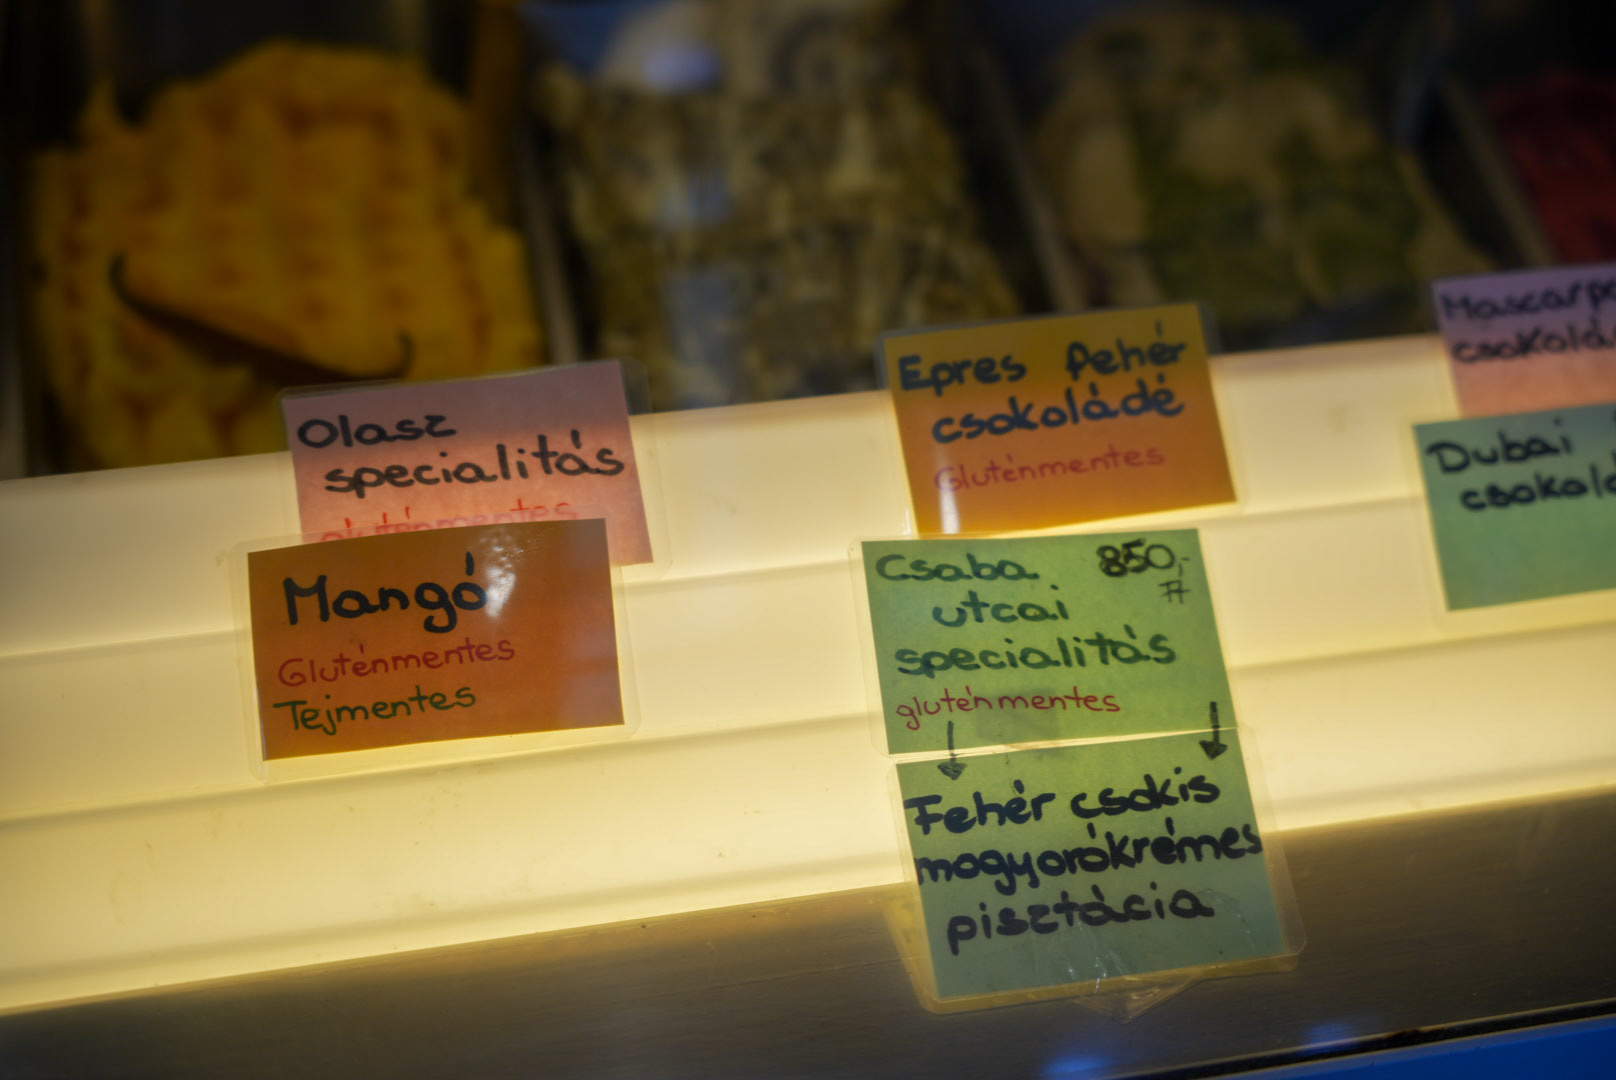 Olasz
specialitás
gluténmentes
Mangó
Gluténmentes
Tejmentes
Epres fehér
csokoládé
Gluténmentes
Csaba 850,-
utcai Ft
specialitás
gluténmentes
Fehér csokis
mogyorókrémes
pisztácia
Mascarpo
csokolá
Dubai
csokolá